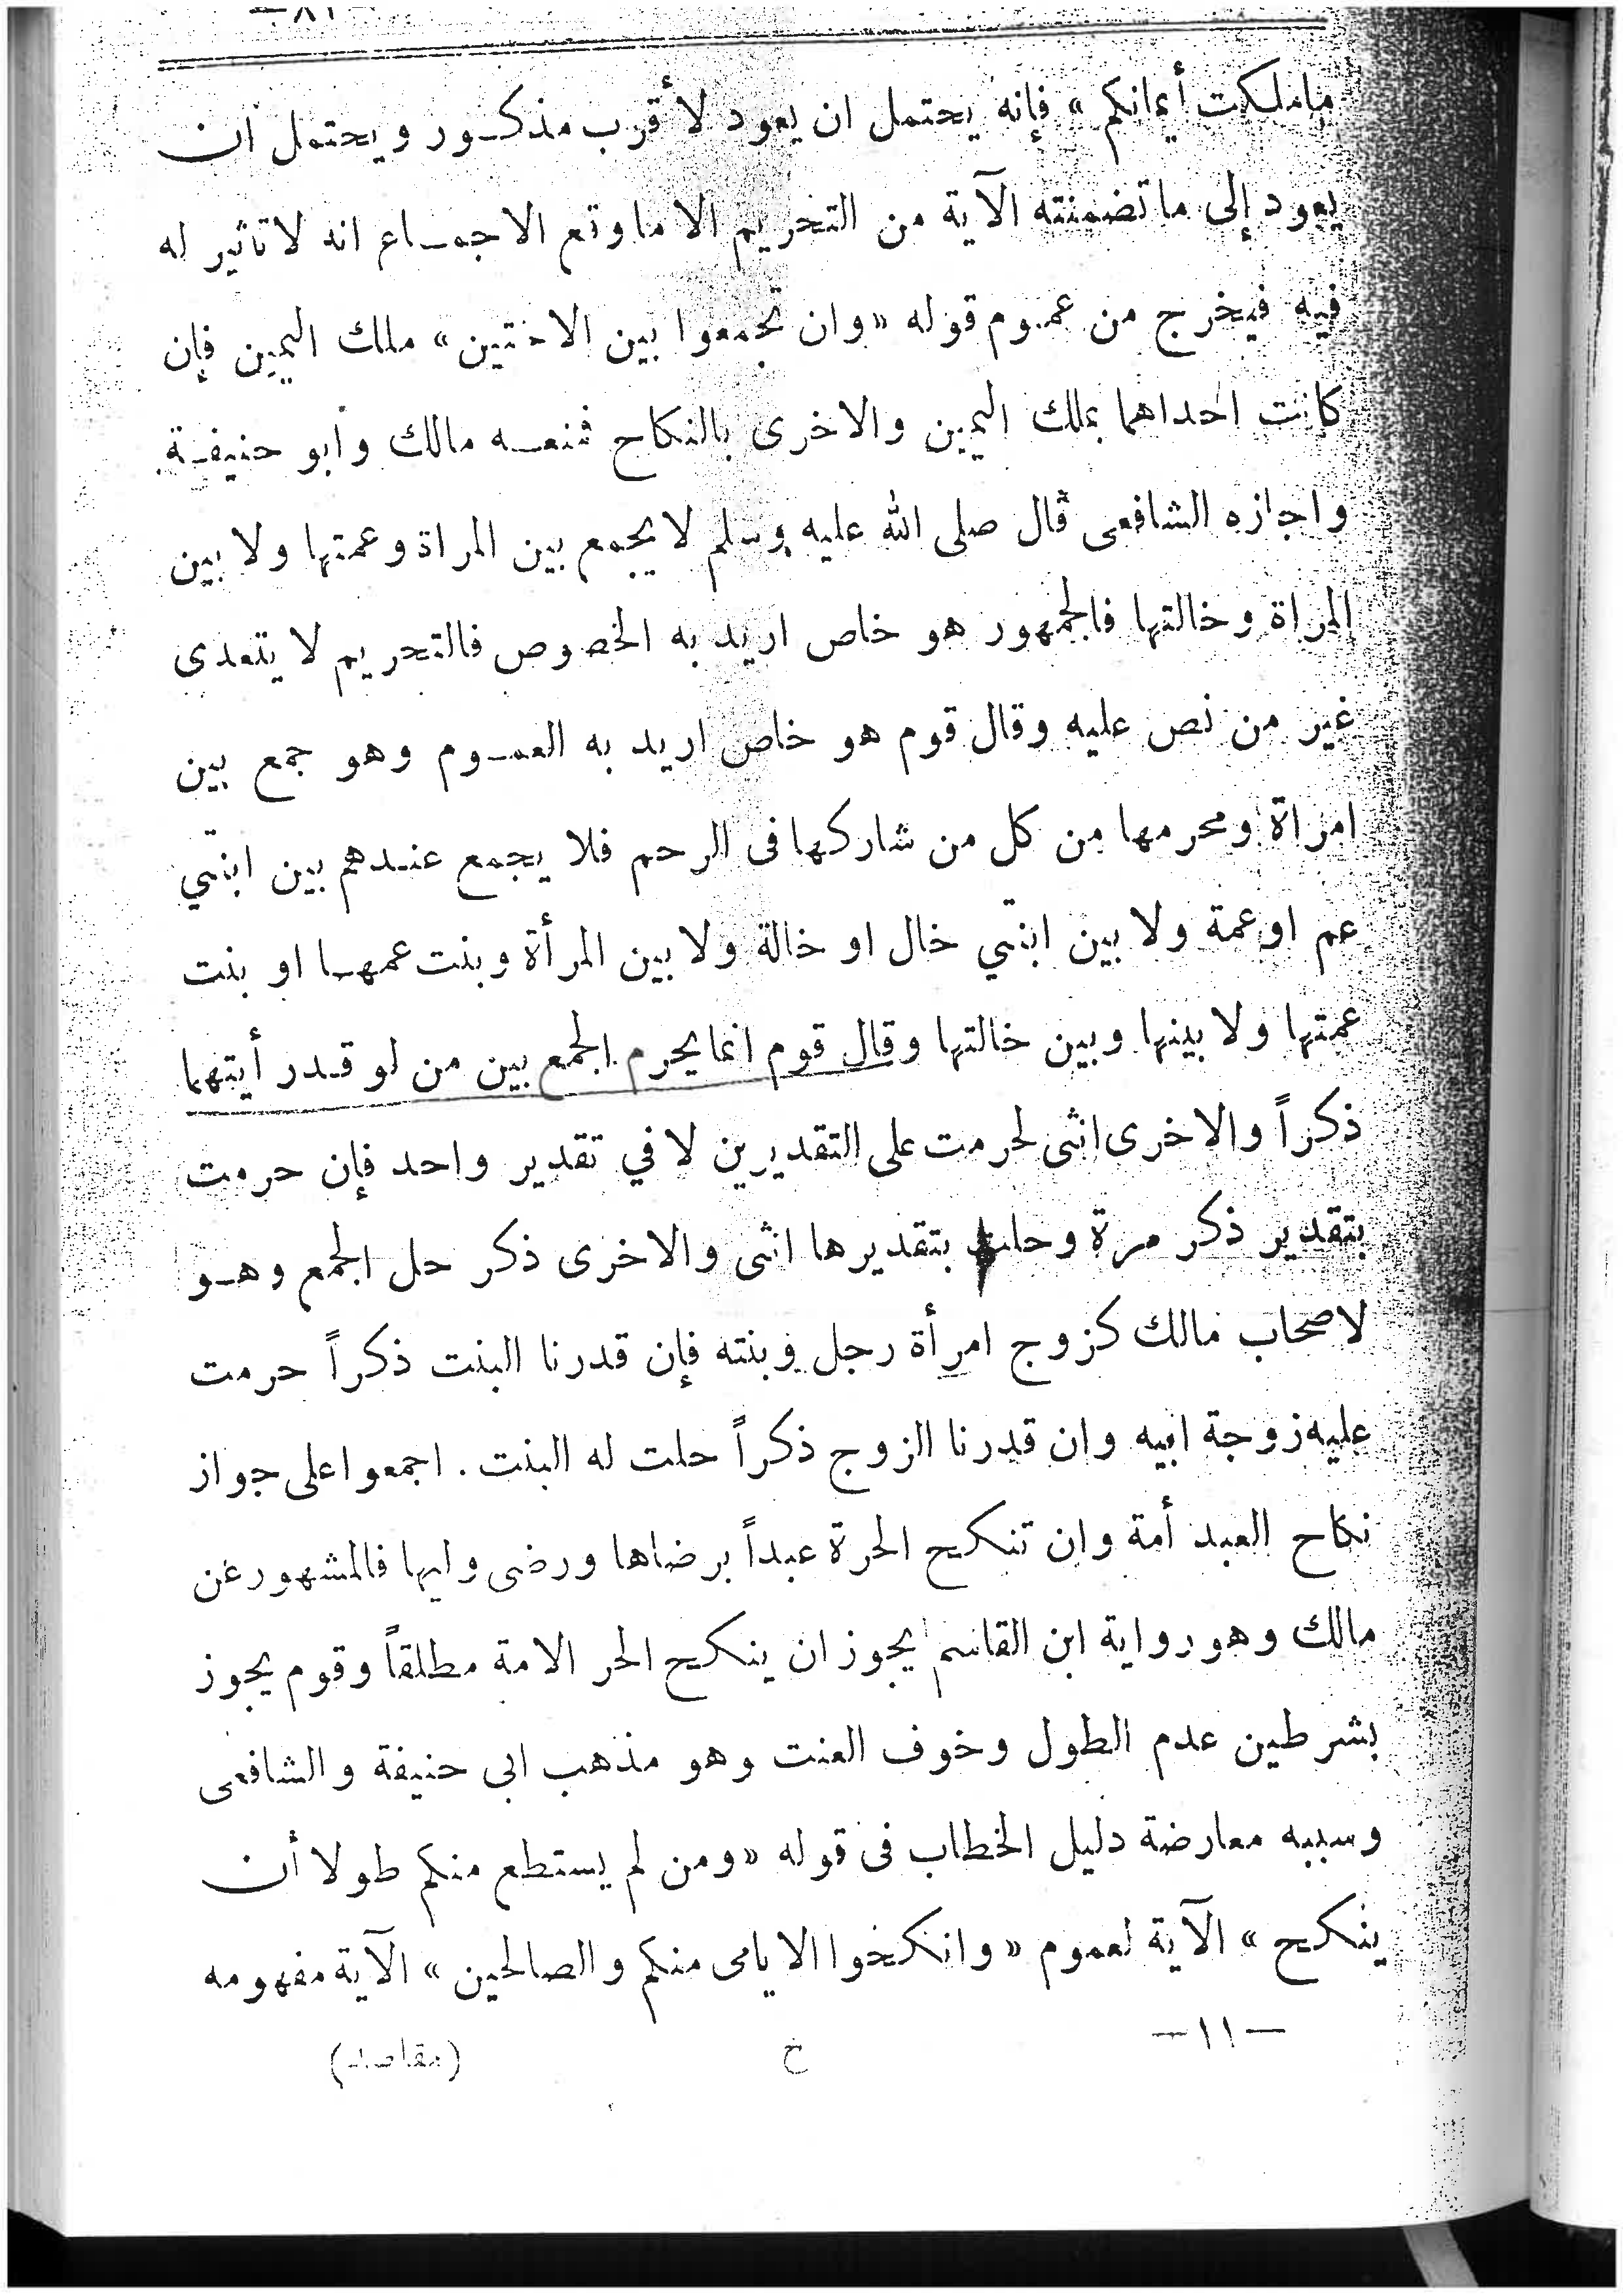 ماملكت أيمانكم» فإنه يحتمل ان يعود لأقرب مذكـور ويحتمل ان
يعود إلى ماتضمنته الآية من التحريم الا ماوقع الاجمـاع انه لاتاثير له
فيه فيخرج من عموم قوله «وان تجمعوا بين الاختين» ملك اليمين فإن
كانت احداهما بملك اليمين والاخرى بالنكاح فمنعـه مالك وابو حنيفـة
واجازه الشافعى قال صلى الله عليه وسلم لايجمع بين المراة وعمتها ولا بين
المراة وخالتها فالجمهور هو خاص اريد به الخصوص فالتحريم لا يتعدى
غير من نص عليه وقال قوم هو خاص اريد به العمـوم وهو جمع بين
امراة ومحرمها من كل من شاركها فى الرحم فلا يجمع عنـدهم بين ابنتي
عم اوعمة ولا بين ابنتي خال او خالة ولا بين المرأة وبنت عمهـا او بنت
عمتها ولا بينها وبين خالتها وقال قوم انما يحرم الجمع بين من لو قـدر أيتهما
ذكراً والاخرى انثى لحرمت على التقديرين لا في تقدير واحد فإن حرمت
بتقدير ذكر مرة وحلت بتقديرها انثى والاخرى ذكر حل الجمع وهـو
لاصحاب مالك كزوج امرأة رجل وبنته فإن قدرنا البنت ذكراً حرمت
عليه زوجة ابيه وان قدرنا الزوج ذكراً حلت له البنت . اجمعوا على جواز
نكاح العبد أمة وان تنكح الحرة عبداً برضاها ورضى وليها فالمشهور عن
مالك وهو رواية ابن القاسم يجوز ان ينكح الحر الامة مطلقاً وقوم يجوز
بشرطين عدم الطول وخوف العنت وهو مذهب ابى حنيفة والشافعى
وسببه معارضة دليل الخطاب فى قوله «ومن لم يستطع منكم طولا أن
ينكح» الآية لعموم «وانكحوا الايامى منكم والصالحين» الآية مفهومه
—١١— خ (مقاصد)